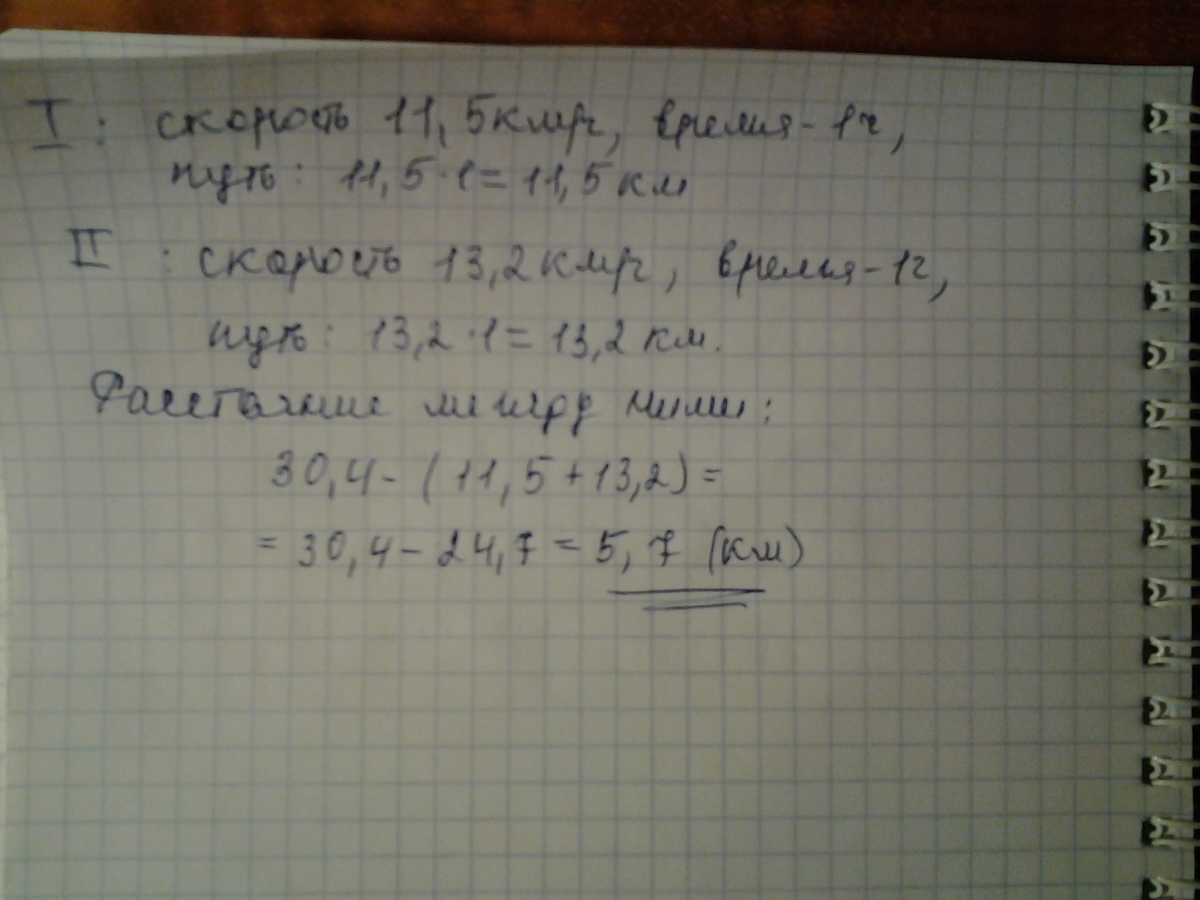 I: скорость 11,5 км/ч, время - 1 ч,
путь: 11,5 · 1 = 11,5 км
II : скорость 13,2 км/ч, время - 1 ч,
путь: 13,2 · 1 = 13,2 км.
Расстояние между ними:
30,4 - (11,5 + 13,2) =
= 30,4 - 24,7 = 5,7 (км)